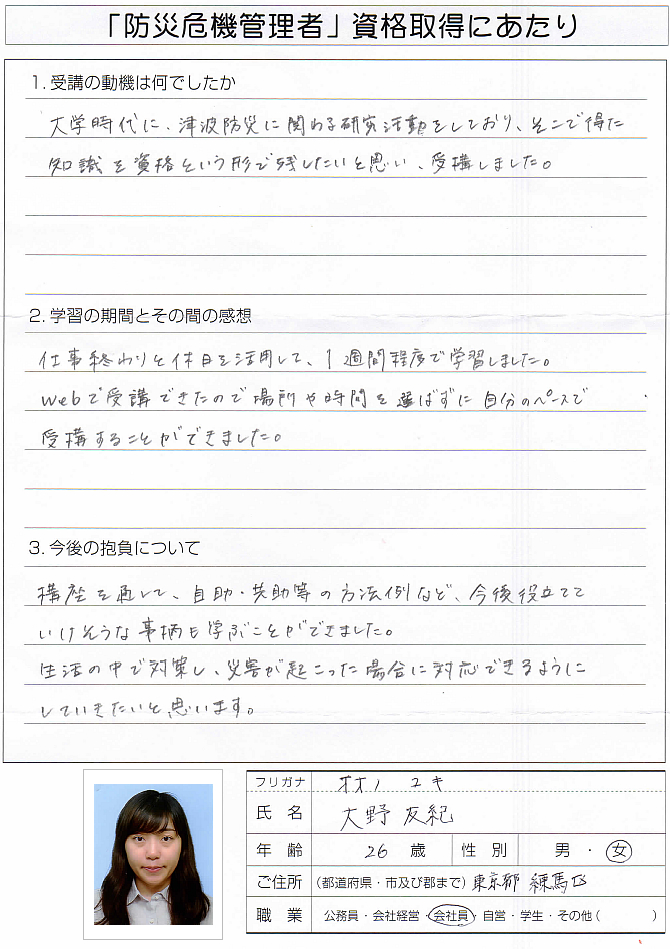 「防災危機管理者」資格取得にあたり
1. 受講の動機は何でしたか
大学時代に、津波防災に関わる研究活動をしており、そこで得た
知識を資格という形で残したいと思い、受構しました。
2. 学習の期間とその間の感想
仕事終わりと休日を活用して、1週間程度で学習しました。
webで受講できたので場所や時間を選ばずに自分のペースで
受構することができました。
3. 今後の抱負について
構座を通して、自助・共助等の方法例など、今後役立てて
いけそうな事柄も学ぶことができました。
生活の中で対策し、災害が起こった場合に対応できるように
していきたいと思います。
フリガナ オオノ ユキ
氏 名 大野 友紀
年 齢 26 歳 性 別 男 ・ 女
ご住所 (都道府県・市及び郡まで) 東京都 練馬区
職 業 公務員・会社経営・会社員・自営・学生・その他( )